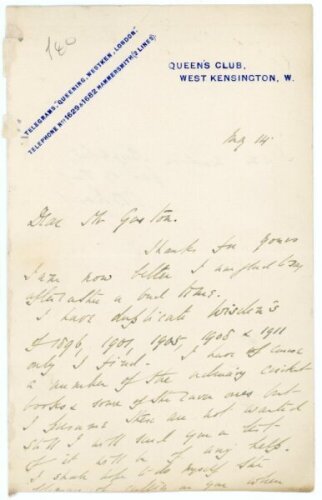 180
TELEGRAMS, "QUEENING, WESTKEN, LONDON."
TELEPHONE Nos 1629 & 1682 HAMMERSMITH (2 LINES).
QUEEN'S CLUB,
WEST KENSINGTON, W.
Aug 14.
Dear Mr Gaston.
Thanks for yours
I am now better I am glad to say
after a bad time.
I have duplicate Wisden's
of 1896, 1901, 1905, 1908 & 1911
only I find. I have of course
a number of the ordinary cricket
books & some of the rarer ones but
I presume these are not wanted
still I will send you a list
if it will be of any help.
I shall hope to do myself the
of calling on you when